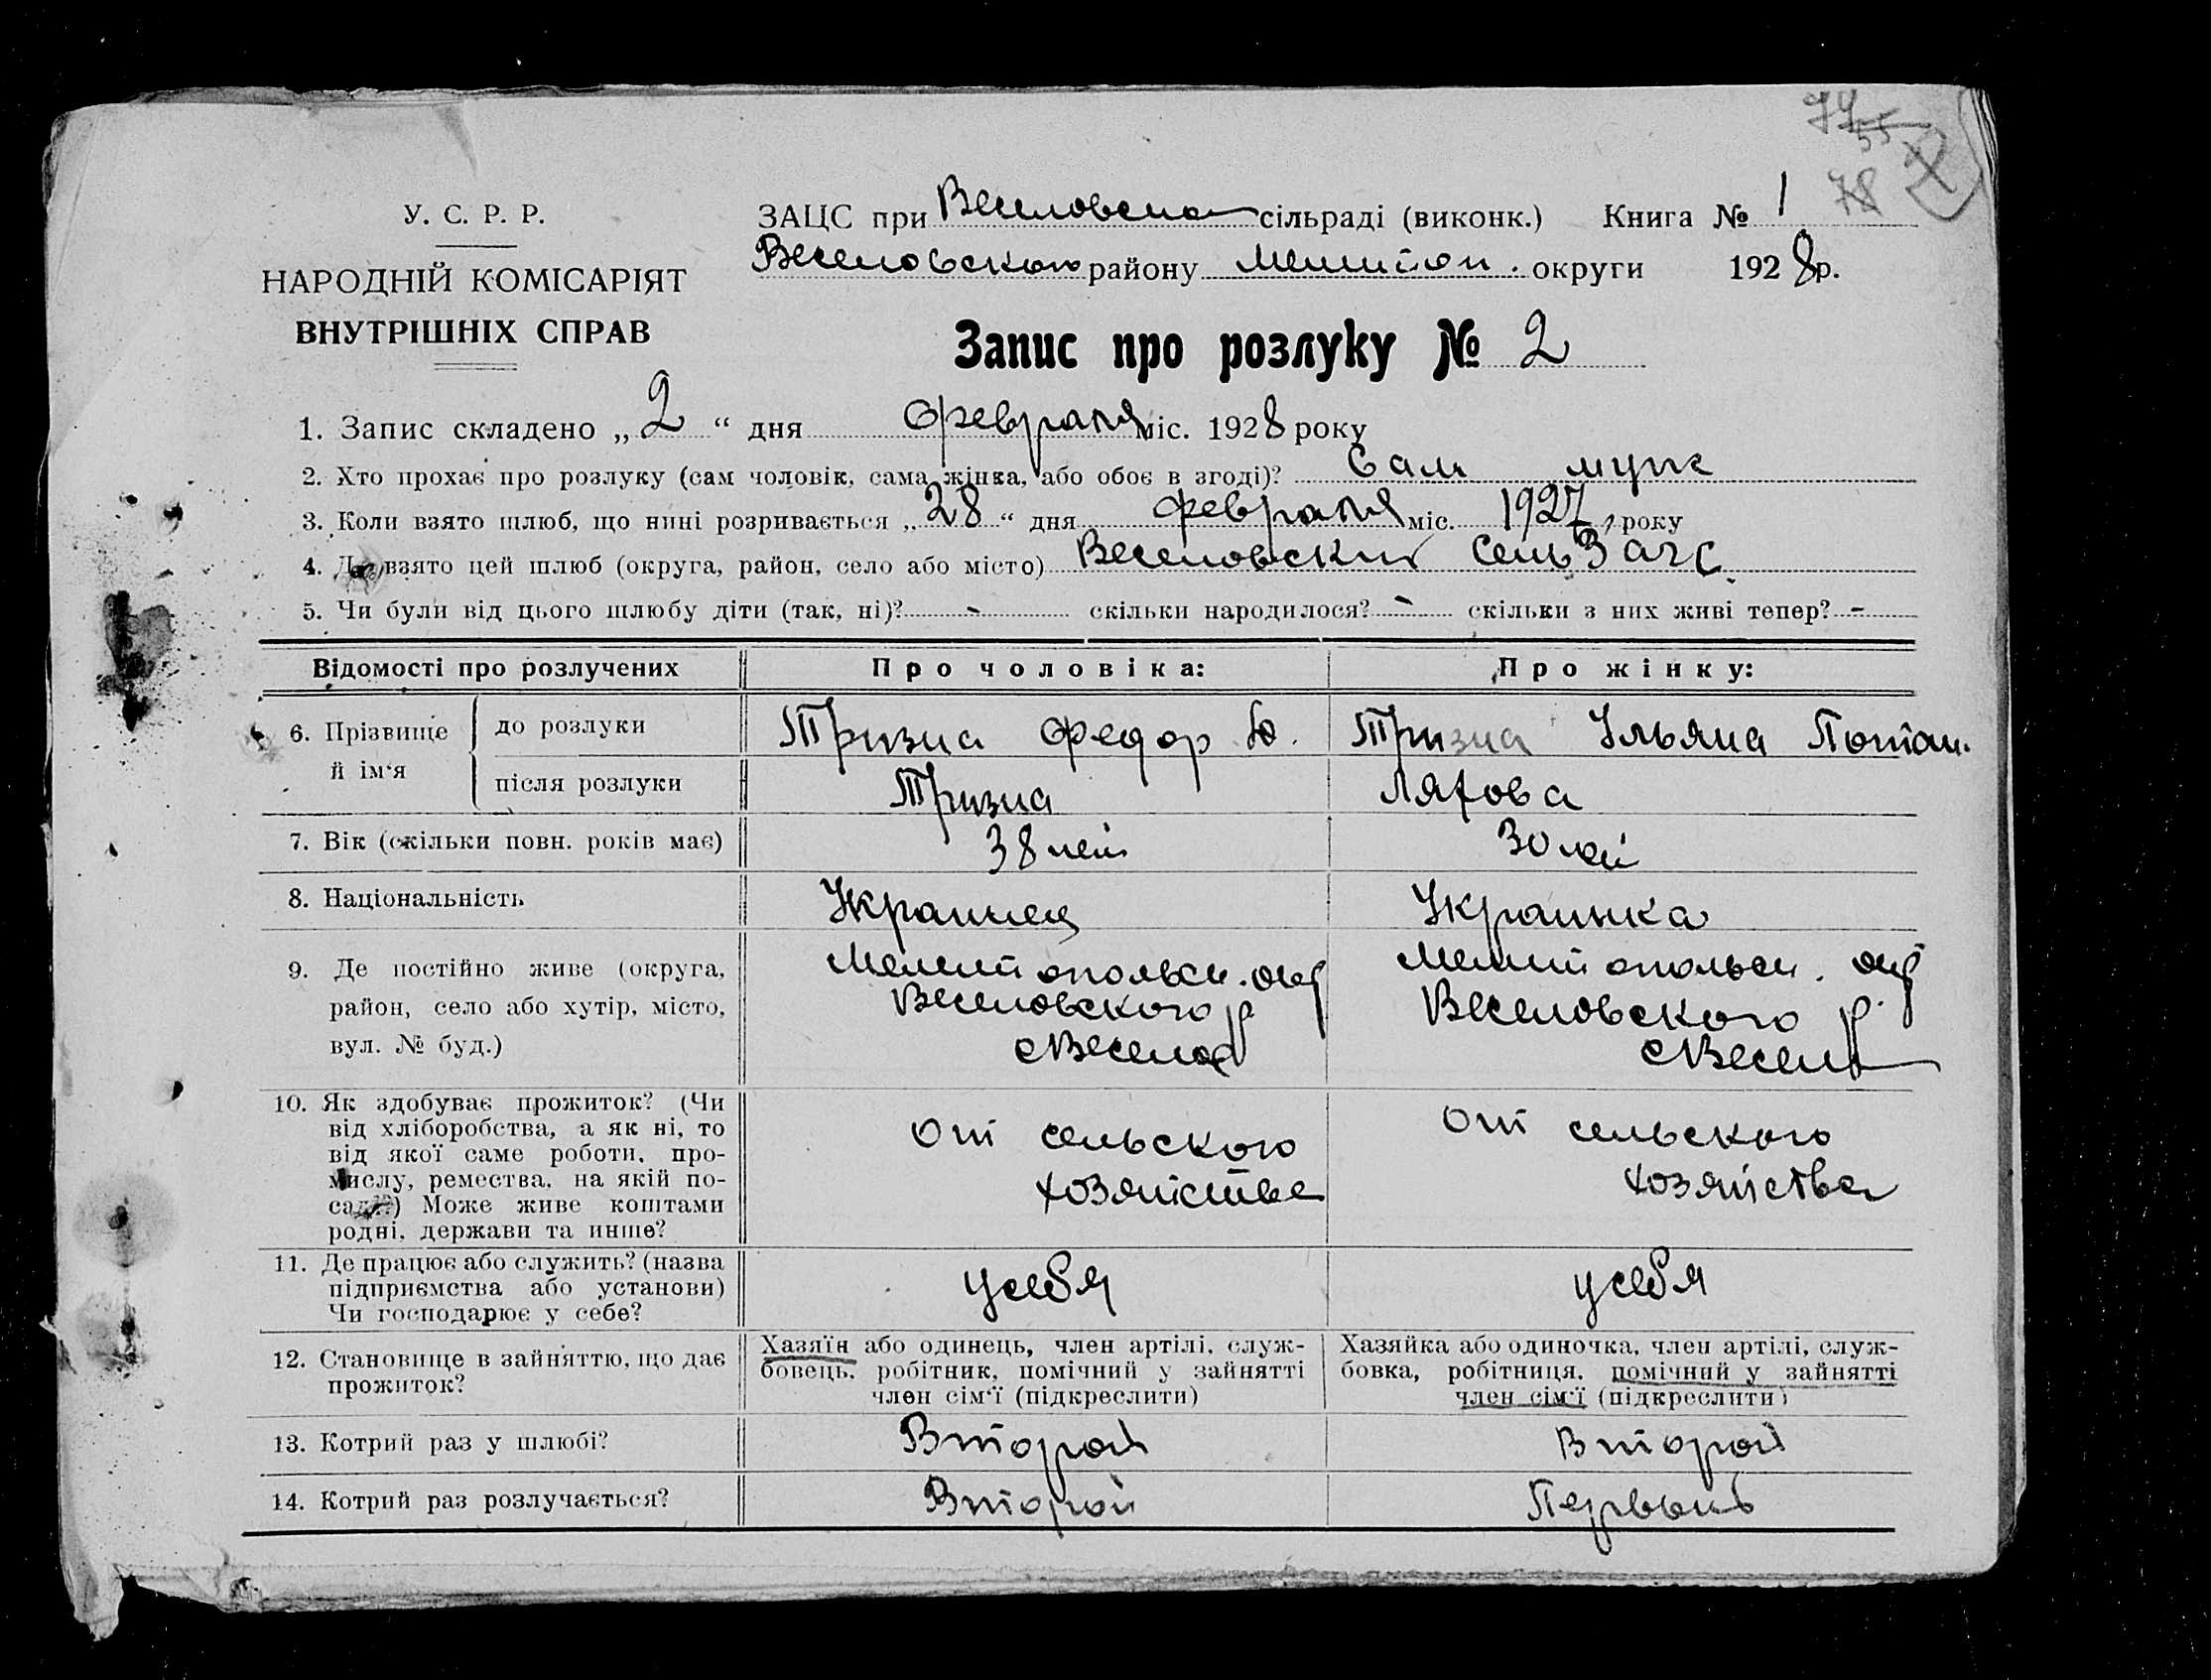 79
55
78
У. С. Р. Р.
НАРОДНІЙ КОМІСАРІЯТ
ВНУТРІШНІХ СПРАВ
ЗАЦС при Веселовском сільраді (виконк.) Книга № 1
Веселовского району Мелитоп. округи 1928 р.
Запис про розлуку № 2
1. Запис складено „2“ дня февраля міс. 1928 року
2. Хто прохає про розлуку (сам чоловік, сама жінка, або обоє в згоді)? Сам муж
3. Коли взято шлюб, що нині розривається „28“ дня февраля міс. 1927 року
4. Де взято цей шлюб (округа, район, село або місто) Веселовский сельЗагс.
5. Чи були від цього шлюбу діти (так, ні)? - скільки народилося? - скільки з них живі тепер? -
Відомості про розлучених Про чоловіка: Про жінку:
6. Прізвище й ім‘я до розлуки Тризна Федор Ю. Тризна Ульяна Потап.
після розлуки Тризна Ляхова
7. Вік (скільки повн. років має) 38 лет 30 лет
8. Національність Украинец Украинка
9. Де постійно живе (округа, Мелитопольск. окр Мелитопольск. окр
район, село або хутір, місто, Веселовского р Веселовского р.
вул. № буд.) с Веселое с Весел
10. Як здобуває прожиток? (Чи
від хліборобства, а як ні, то От сельского От сельского
від якої саме роботи, про-
мислу, ремества, на якій по- хозяйства хозяйства
саді?) Може живе коштами
родні, держави та инше?
11. Де працює або служить? (назва
підприємства або установи) у себя у себя
Чи господарює у себе?
12. Становище в зайняттю, що дає
прожиток?
Хазяїн або одинець, член артілі, служ-
бовець, робітник, помічний у зайнятті
член сім‘ї (підкреслити)
Хазяйка або одиночка, член артілі, служ-
бовка, робітниця, помічний у зайнятті
член сім‘ї (підкреслити)
13. Котрий раз у шлюбі? Второй Второй
14. Котрий раз розлучається? Второй Первый